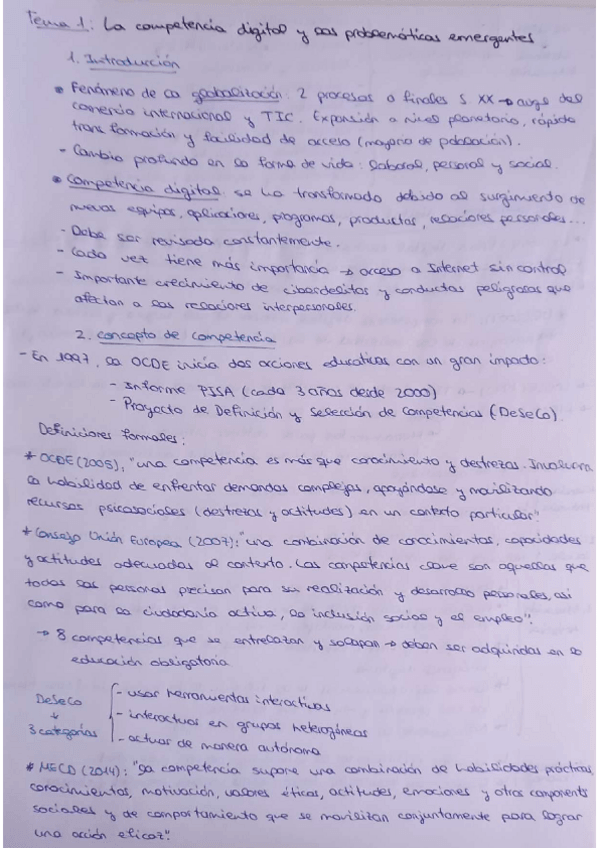 Tema 1: La competencia digital y sus problemáticas emergentes.
1. Introducción
• Fenómeno de la globalización: 2 procesos a finales S. XX → auge del
comercio internacional y TIC. Expansión a nivel planetario, rápida
transformación y facilidad de acceso (mayoría de población).
- Cambio profundo en la forma de vida: laboral, personal y social.
• Competencia digital: se ha transformado debido al surgimiento de
nuevos equipos, aplicaciones, programas, productos, relaciones personales...
- Debe ser revisada constantemente.
- Cada vez tiene más importancia → acceso a Internet sin control
- Importante crecimiento de ciberdelitos y conductas peligrosas que
afectan a las relaciones interpersonales.
2. Concepto de competencia
- En 1997, la OCDE inicia dos acciones educativas con un gran impacto:
- Informe PISA (cada 3 años desde 2000)
- Proyecto de Definición y Selección de Competencias (DeSeCo).
Definiciones formales:
* OCDE (2005), "una competencia es más que conocimiento y destrezas. Involucra
la habilidad de enfrentar demandas complejas, apoyándose y movilizando
recursos psicosociales (destrezas y actitudes) en un contexto particular".
* Consejo Unión Europea (2007): "una combinación de conocimientos, capacidades
y actitudes adecuadas al contexto. Las competencias clave son aquellas que
todas las personas precisan para su realización y desarrollo personales, así
como para la ciudadanía activa, la inclusión social y el empleo".
→ 8 competencias que se entrelazan y solapan → deben ser adquiridas en la
educación obligatoria
DeSeCo
↓
3 categorías
- usar herramientas interactivas
- interactuar en grupos heterogéneos
- actuar de manera autónoma
* MECD (2014): "la competencia supone una combinación de habilidades prácticas,
conocimientos, motivación, valores éticos, actitudes, emociones y otros componentes
sociales y de comportamiento que se movilizan conjuntamente para lograr
una acción eficaz".